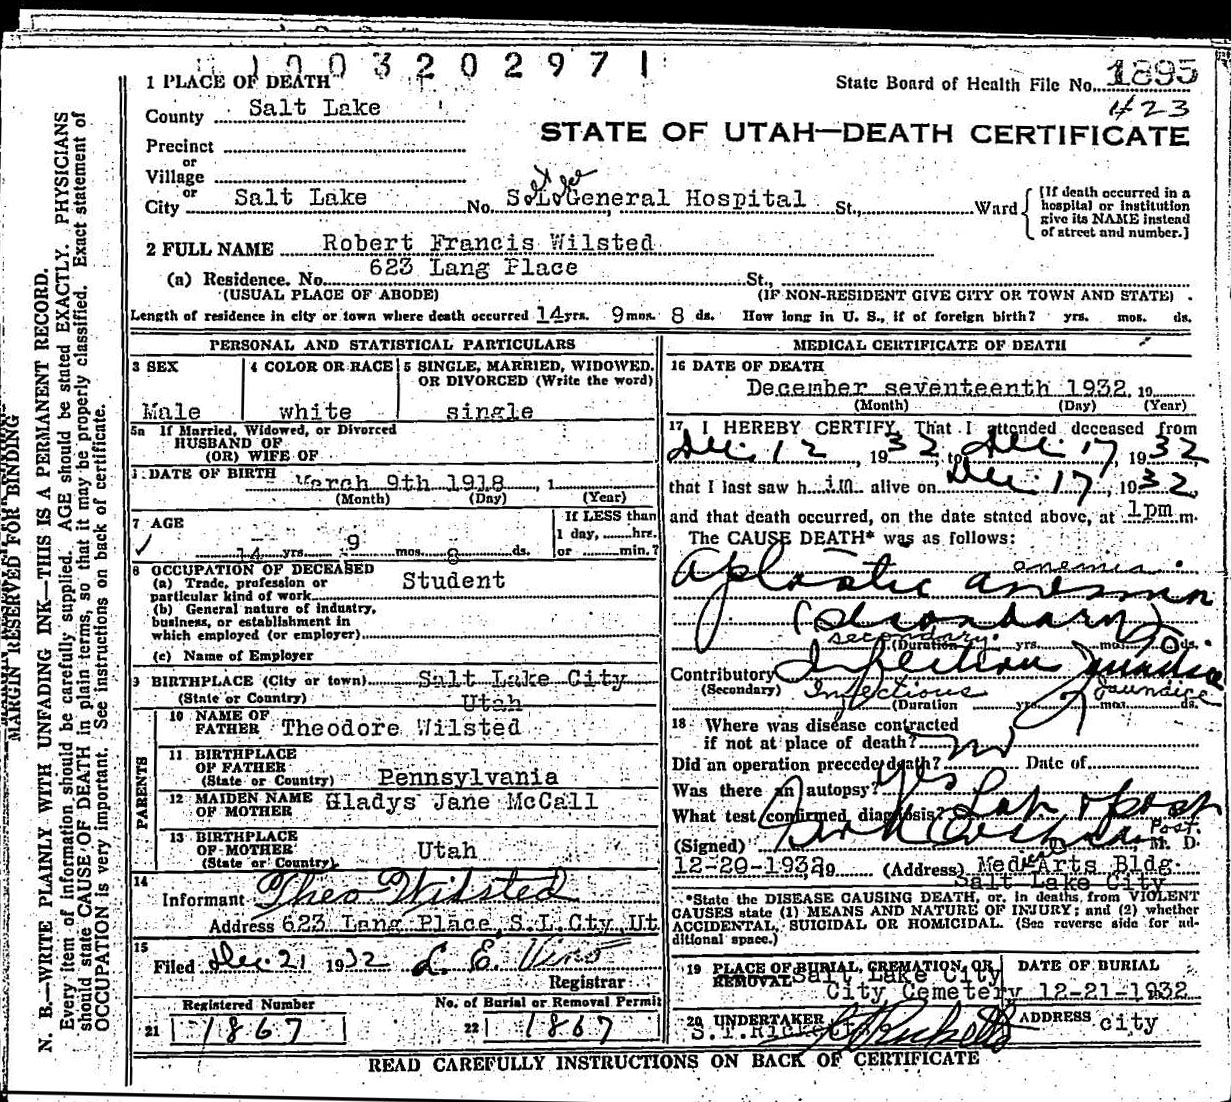 1003202971
1 PLACE OF DEATH
State Board of Health File No. 1895
#23
County Salt Lake
STATE OF UTAH—DEATH CERTIFICATE
Precinct
or
Village
or
City Salt Lake No. S. L. General Hospital St., Ward
[If death occurred in a hospital or institution give its NAME instead of street and number.]
2 FULL NAME Robert Francis Wilsted
(a) Residence. No. 623 Lang Place St.,
(USUAL PLACE OF ABODE) (IF NON-RESIDENT GIVE CITY OR TOWN AND STATE)
Length of residence in city or town where death occurred 14 yrs. 9 mos. 8 ds. How long in U. S., if of foreign birth? yrs. mos. ds.
PERSONAL AND STATISTICAL PARTICULARS
3 SEX
Male
4 COLOR OR RACE
white
5 SINGLE, MARRIED, WIDOWED, OR DIVORCED (Write the word)
single
5a If Married, Widowed, or Divorced
HUSBAND OF
(OR) WIFE OF
DATE OF BIRTH March 9th 1918, 1
(Month) (Day) (Year)
7 AGE
14 yrs. 9 mos. 8 ds.
If LESS than
1 day, hrs.
or min.?
8 OCCUPATION OF DECEASED
(a) Trade, profession or
particular kind of work Student
(b) General nature of industry,
business, or establishment in
which employed (or employer)
(c) Name of Employer
9 BIRTHPLACE (City or town) Salt Lake City
(State or Country) Utah
PARENTS
10 NAME OF
FATHER Theodore Wilsted
11 BIRTHPLACE
OF FATHER
(State or Country) Pennsylvania
12 MAIDEN NAME
OF MOTHER Gladys Jane McCall
13 BIRTHPLACE
OF MOTHER
(State or Country) Utah
14
Informant Theo Wilsted
Address 623 Lang Place, S.L. Cty, Ut
15
Filed Dec. 21 1932 L. E. Viko
Registrar
Registered Number
21 1867
No. of Burial or Removal Permit
22 1867
MEDICAL CERTIFICATE OF DEATH
16 DATE OF DEATH
December seventeenth 1932. 19
(Month) (Day) (Year)
17 I HEREBY CERTIFY, That I attended deceased from
Dec. 12, 1932, to Dec. 17, 1932,
that I last saw him alive on Dec. 17, 1932,
and that death occurred, on the date stated above, at 1pm m.
The CAUSE DEATH* was as follows:
anemia
Aplastic anemia
(Secondary)
secondary.
(Duration yrs. mos. ds.
Contributory Infectious Jaundice
(Secondary) Infectious Jaundice
(Duration yrs. mos. ds.
18 Where was disease contracted
if not at place of death?
Did an operation precede death? no Date of
Was there an autopsy? Yes
What test confirmed diagnosis? Lab & post
Post.
(Signed) M. D.
12-20-1932 19 (Address) Med Arts Bldg.
Salt Lake City
*State the DISEASE CAUSING DEATH, or, in deaths from VIOLENT
CAUSES state (1) MEANS AND NATURE OF INJURY; and (2) whether
ACCIDENTAL, SUICIDAL OR HOMICIDAL. (See reverse side for ad-
ditional space.)
19 PLACE OF BURIAL, CREMATION, OR
REMOVAL Salt Lake City
City Cemetery
DATE OF BURIAL
12-21-1932
20 UNDERTAKER
ADDRESS city
READ CAREFULLY INSTRUCTIONS ON BACK OF CERTIFICATE
MARGIN RESERVED FOR BINDING
N. B.—WRITE PLAINLY WITH UNFADING INK—THIS IS A PERMANENT RECORD.
Every item of information should be carefully supplied. AGE should be stated EXACTLY. PHYSICIANS
should state CAUSE OF DEATH in plain terms, so that it may be properly classified. Exact statement of
OCCUPATION is very important. See instructions on back of certificate.